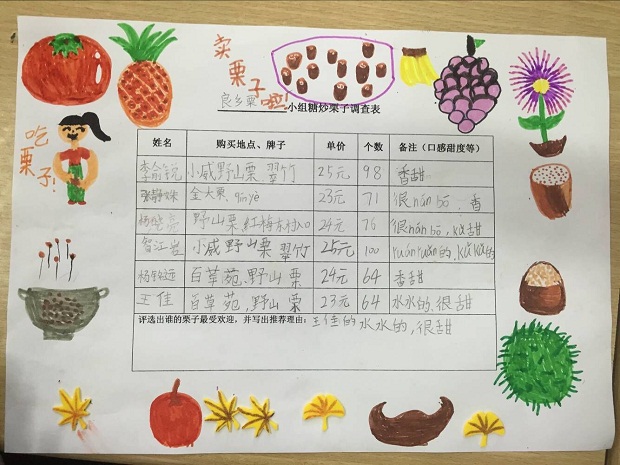 卖栗子啦!
良乡栗
小组糖炒栗子调查表
吃栗子!
姓名 购买地点、牌子 单价 个数 备注（口感甜度等）
李俞锐 小咸野山栗 翠竹 25元 98 香甜
张静姝 金大栗、yín yè 23元 71 很nán bō、香
杨晓亮 野山栗 红梅东村入口 24元 76 很nán bō,kǎ甜
智江岩 小咸野山栗 翠竹 25元 100 ruǎnruǎn的、kǎkǎ的
杨锦远 百草苑、野山栗 24元 64 香甜
王佳 百草苑、野山栗 23元 64 水水的、很甜
评选出谁的栗子最受欢迎，并写出推荐理由：王佳的水水的，很甜